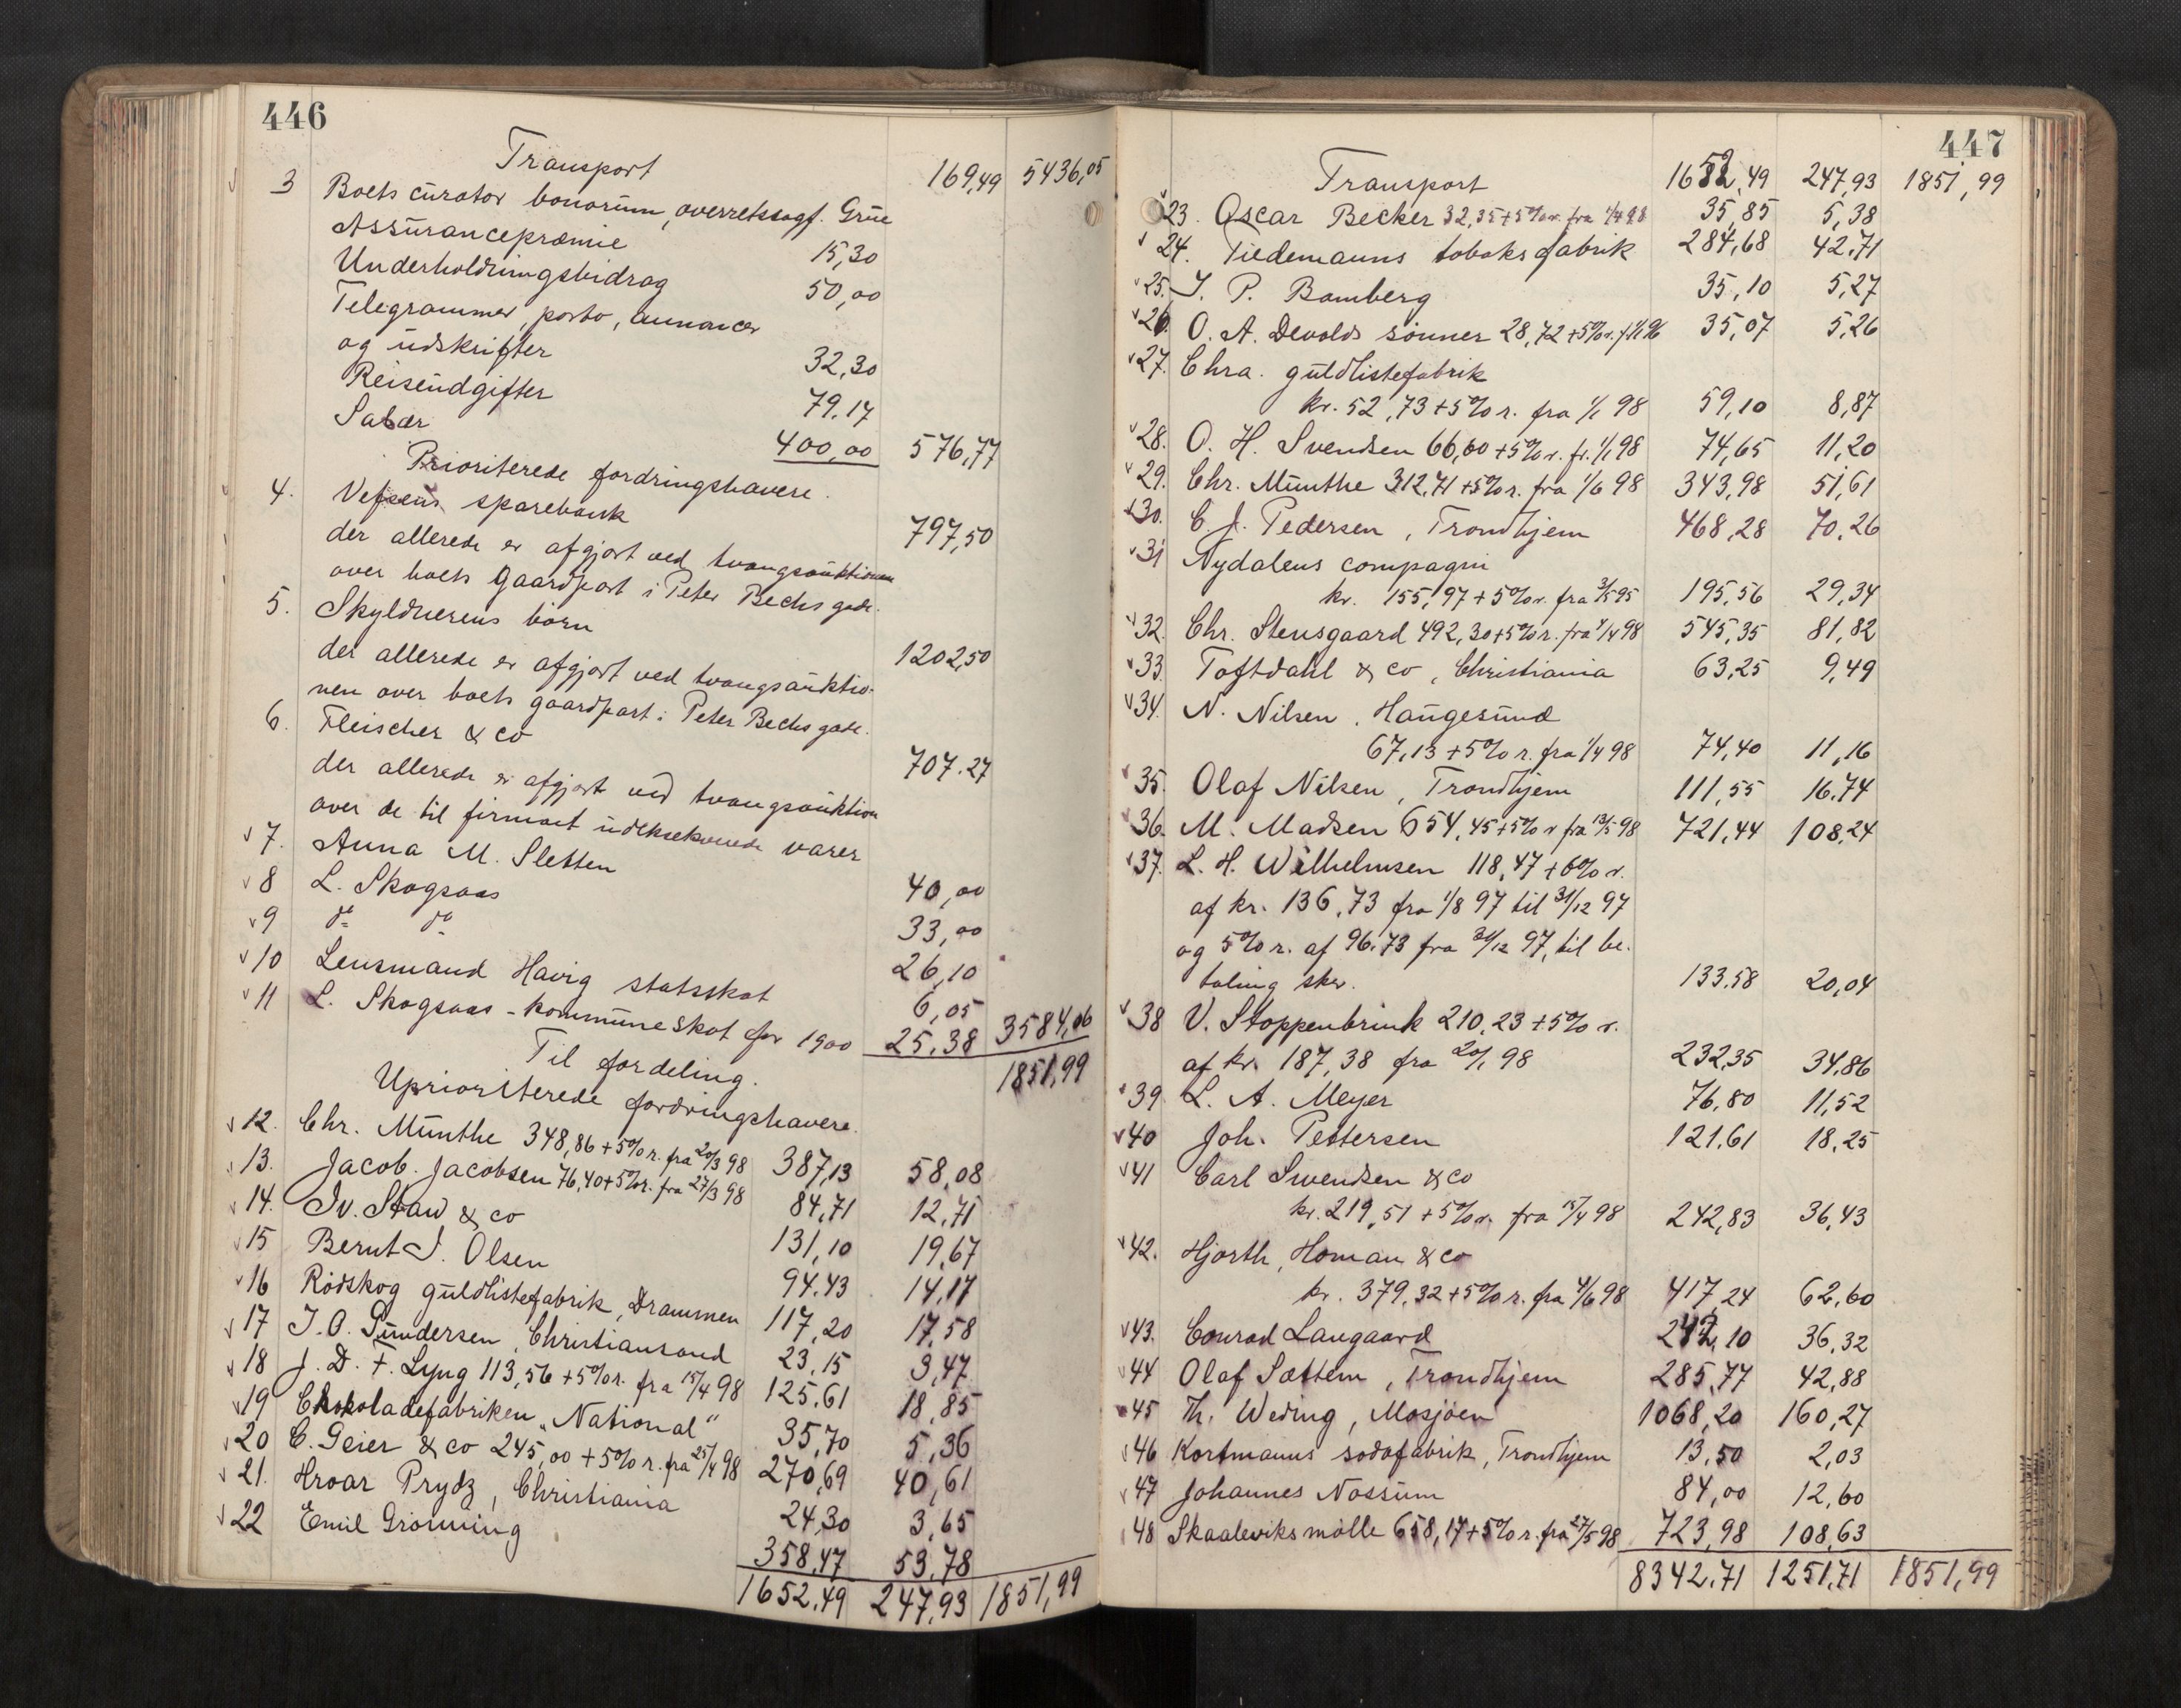 446
Transport 169,49 5436,05
3 Boets curator bonorum, overretssagf. Grüe
Assurancepræmie 15,30
Underholdningsbidrag 50,00
Telegrammer, porto, annoncer
og udskrifter 32,30
Reiseudgifter 79,17
Salær 400,00 576,77
Prioriterede fordringshavere.
4. Vefsens sparebank 797,50
der allerede er afgjort ved tvangsauktionen
over boets gaardpart i Peter Bechs gade.
5. Skyldnerens børn 1202,50
der allerede er afgjort ved tvangsauktio-
nen over boets gaardpart i Peter Bechs gade.
6. Fleischer & co 707.27
der allerede er afgjort ved tvangsauktion
over de til firmaet udeksekverede varer
7. Anna M. Sletten 40,00
8 L. Skogsaas 33,00
9 do do 26,10
10 Lensmand Havig statsskat 6,05
11 L. Skogsaas - kommuneskat for 1900 25,38 3584,06
Til fordeling. 1851,99
Uprioriterede fordringshavere.
12. Chr. Münthe 348,86 + 5% r. fra 20/3 98 387,13 58,08
13. Jacob Jacobsen 76,40 + 5% r. fra 27/3 98 84,71 12,71
14. Iv. Staw & co 131,10 19,67
15 Bernt J. Olsen 94.43 14,17
16 Rødskog guldlistefabrik, Drammen 117,20 17,58
17 J. O. Gundersen, Christiansand 23,15 3,47
18 J. D. F. Lyng 113,56 + 5% r. fra 15/4 98 125,61 18,85
19 Chokoladefabriken "National" 35,70 5,36
20 C. Geier & co 245,00 + 5% r. fra 25/4 98 270,69 40,61
21. Hroar Prydz, Christiania 24,30 3,65
22 Emil Grønning 358,47 53,78
1652,49 247,93 1851,99
447
Transport 1652,49 247,93 1851,99
23. Oscar Becker 32,35 + 5% r. fra 1/4 98 35,85 5,38
24. Tiedemanns tobaksfabrik 284,68 42,71
25. J. P. Bamberg 35,10 5,27
26. O. A. Devolds sønner 28,72 + 5% r. f. 1/1 96 35,07 5,26
27. Chra. guldlistefabrik
kr. 52,73 + 5% r. fra 1/1 98 59,10 8,87
28. O. H. Svendsen 66,60 + 5% r. fr. 1/1 98 74,65 11,20
29. Chr. Münthe 312,71 + 5% r. fra 1/6 98 343,98 51,61
30. C. J. Pedersen, Trondhjem 468,28 70,26
31 Nydalens compagni
kr. 155,97 + 5% r. fra 3/5 95 195,56 29,34
32. Chr. Stensgaard 492,30 + 5% r. fra 4/4 98 545,35 81,82
33. Toftdahl & co, Christiania 63,25 9,49
34. N. Nilsen, Haugesund
67,13 + 5% r. fra 1/4 98 74,40 11,16
35. Olaf Nilsen, Trondhjem 111,55 16,74
36. M. Madsen 654,45 + 5% r fra 13/5 98 721,44 108,24
37. L. H. Wilhelmsen 118,47 + 6% r.
af kr. 136,73 fra 1/8 97 til 31/12 97
og 5% r. af 96.73 fra 31/12 97, til be-
taling sker. 133.58 20,04
38 V. Stoppenbrink 210,23 + 5% r.
af kr. 187,38 fra 20/1 98 232,35 34,86
39 L. A. Meyer 76,80 11,52
40 Joh. Pettersen 121,61 18,25
41 Carl Swendsen & co
kr. 219,51 + 5% r. fra 15/4 98 242,83 36,43
42. Hjorth, Homan & co
kr. 379,32 + 5% r. fra 4/6 98 417,24 62,60
43. Conrad Langaard 242,10 36,32
44 Olaf Sættem, Trondhjem 285,77 42,88
45 Th. Weding, Mosjøen 1068,20 160,27
46 Kortmanns sodafabrik, Trondhjem 13,50 2,03
47 Johannes Nossum 84,00 12,60
48 Skaaleviks mølle 658,17 + 5% r. fra 27/5 98 723,98 108,63
8342,71 1251,71 1851,99